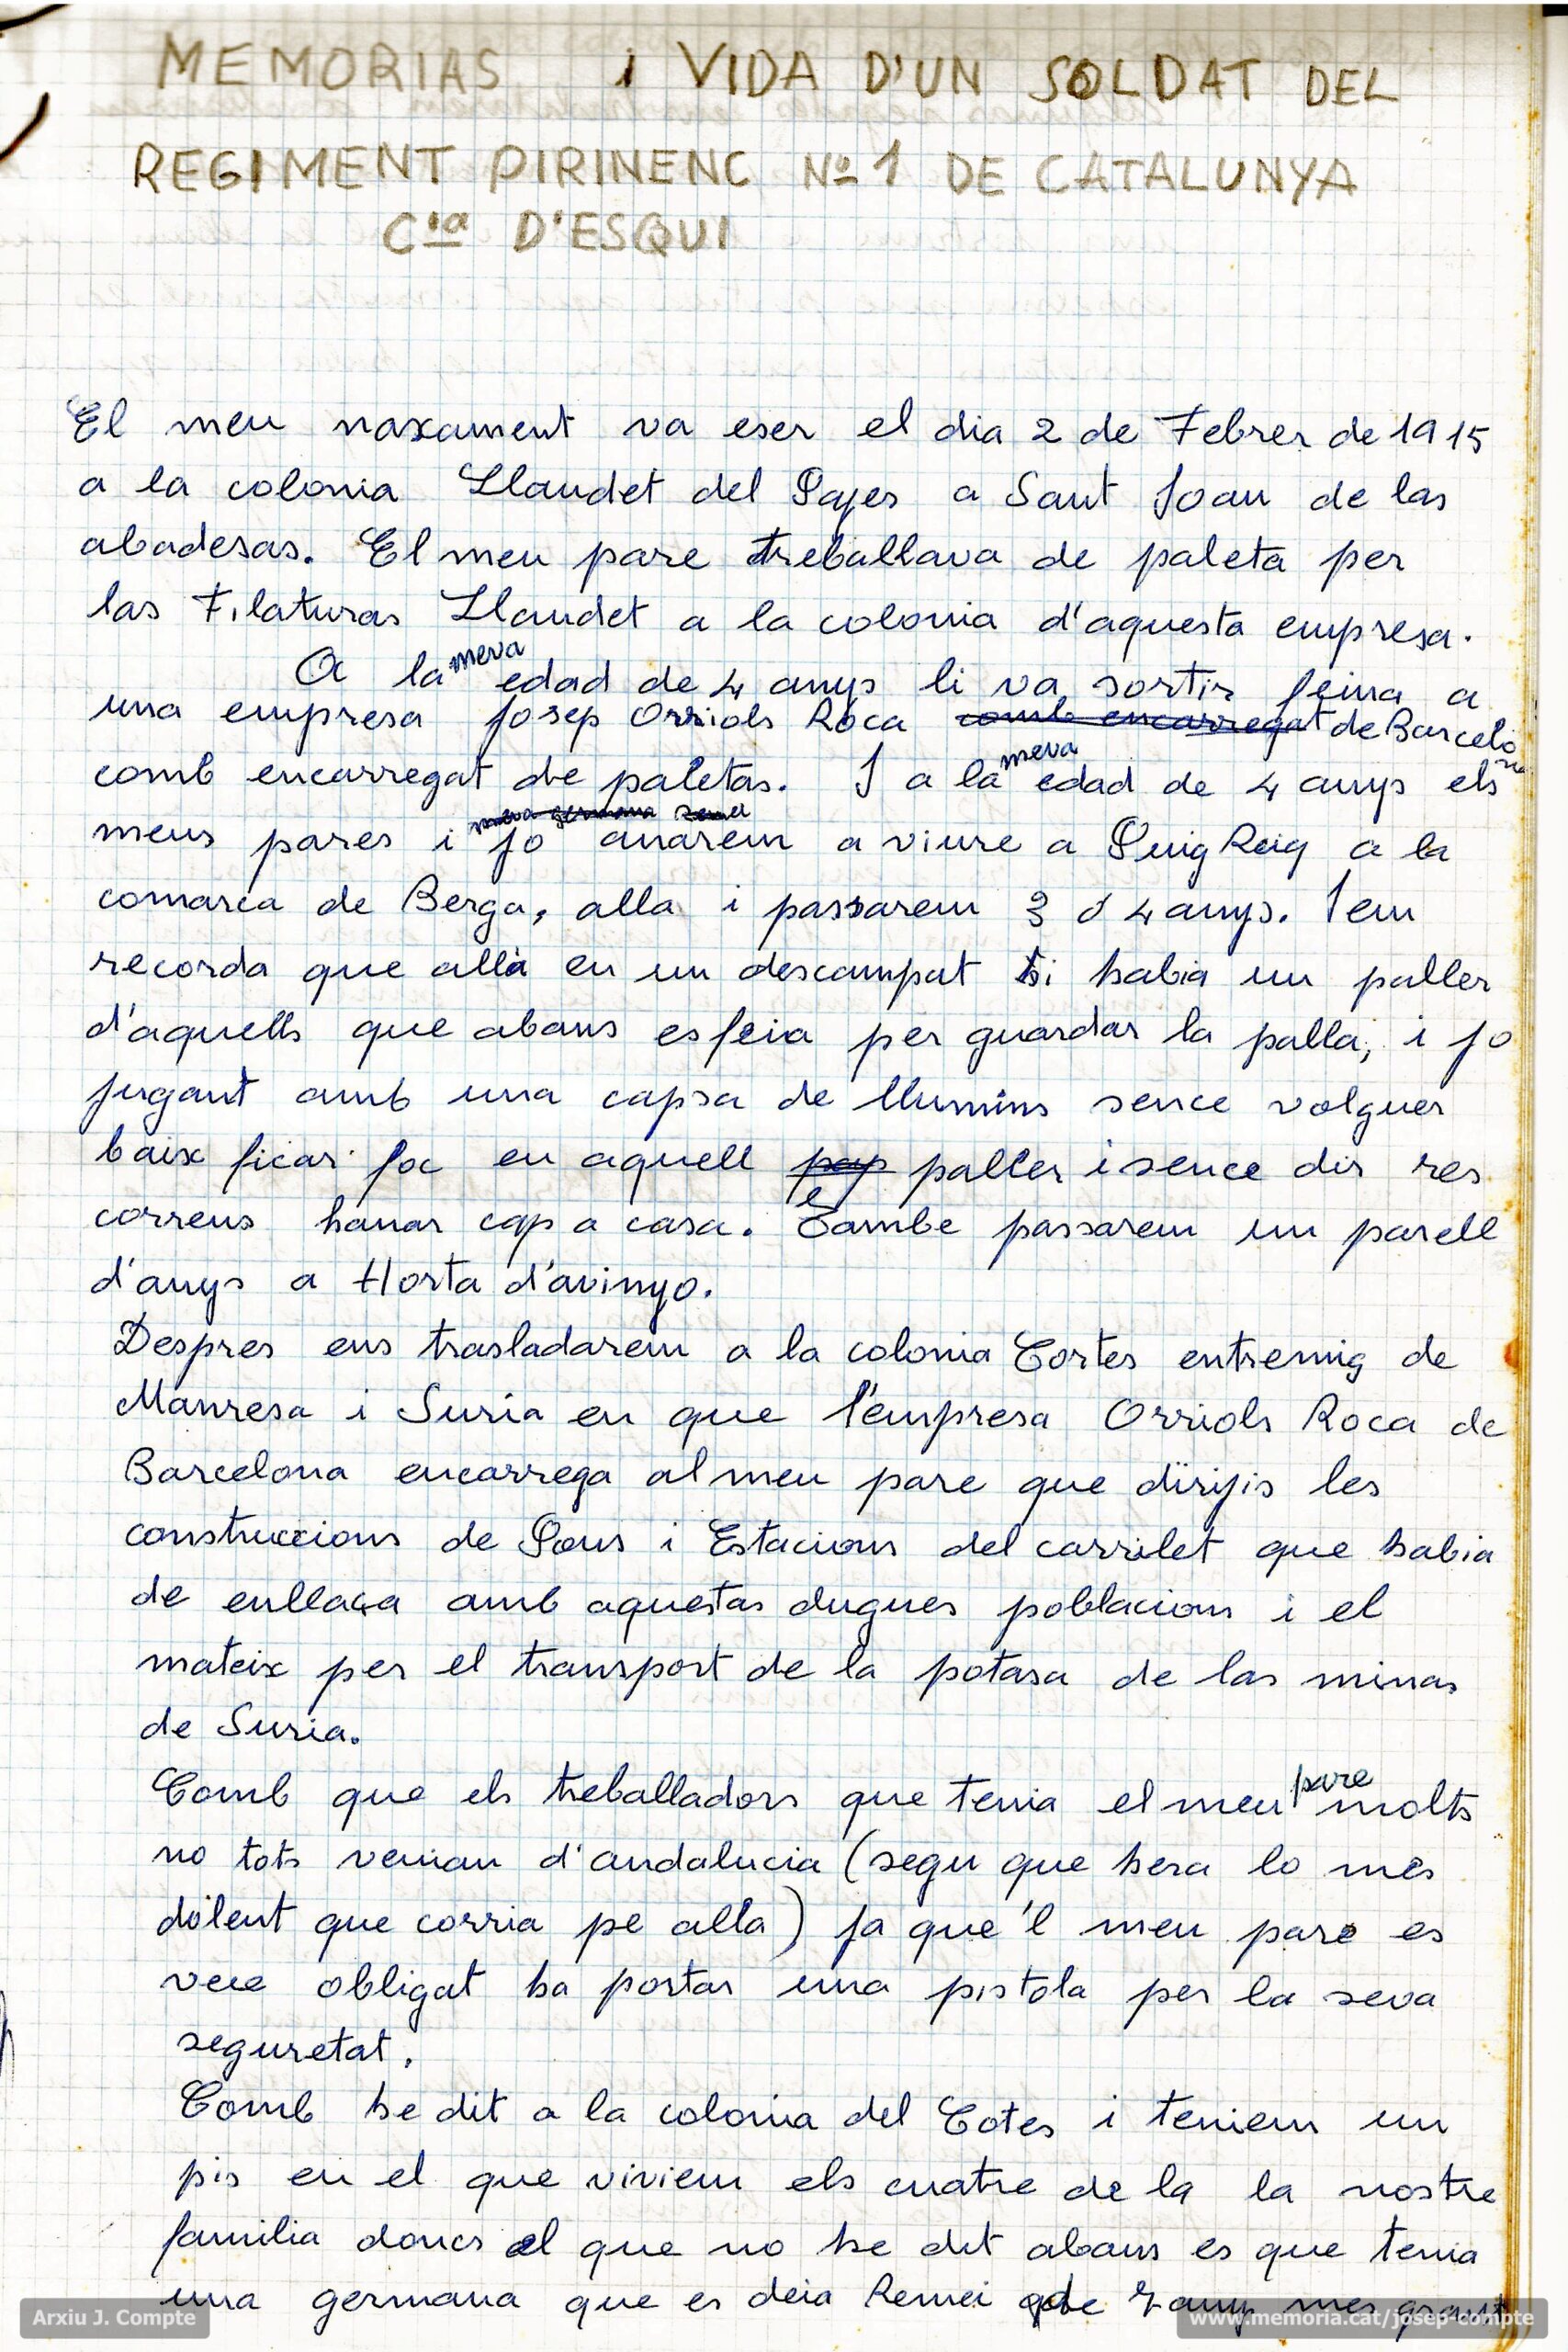 MEMORIAS i VIDA D'UN SOLDAT DEL
REGIMENT PIRINENC Nº 1 DE CATALUNYA
Cia D'ESQUI
El meu naxament va eser el dia 2 de Febrer de 1915
a la colonia Llaudet del Pajes a Sant Joan de las
abadesas. El meu pare treballava de paleta per
las Filaturas Llaudet a la colonia d'aquesta empresa.
A la meva edad de 4 anys li va sortir feina a
una empresa Josep Orriols Roca comb encarregat de Barcelona
comb encarregat de paletas. I a la meva edad de 4 anys els
meva germana Remei
meus pares i jo anarem a viure a Puig Reig a la
comarca de Berga, alla i passarem 3 o 4 anys. I em
recorda que allà en un descampat hi habia un paller
d'aquells que abans es feia per guardar la palla, i jo
jugant amb una capsa de llumins sence volguer
baix ficar foc en aquell paller i sence dir res
correns hanar cap a casa. Tambe passarem un parell
d'anys a Horta d'avinyo.
Despres ens trasladarem a la colonia Cortes entremig de
Manresa i Suria en que l'empresa Orriols Roca de
Barcelona encarrega al meu pare que dirijis les
construccions de Pons i Estacions del carrilet que habia
de enllaça amb aquestas dugues poblacions i el
mateix per el transport de la potasa de las minas
de Suria.
Comb que els treballadors que tenia el meu pare molts
no tots venian d'andalucia (segu que hera lo mès
dolent que corria pe alla) ja que'l meu pare es
veie obligat ha portar una pistola per la seva
seguretat.
Comb he dit a la colonia del Cotes i teniem un
pis en el que viviem els cuatre de la la nostre
familia doncs el que no he dit abans es que tenia
una germana que es deia Remei de 7 anys mes grant
Arxiu J. Compte
www.memoria.cat/josep-compte